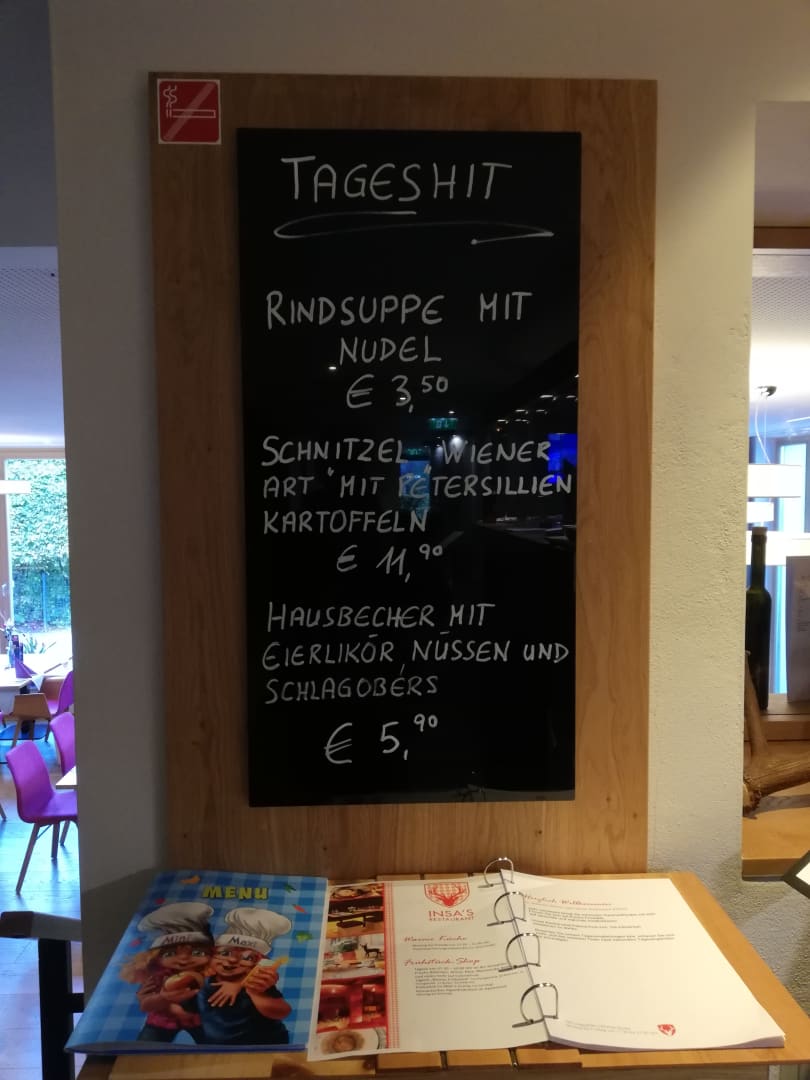 TAGESHIT
RINDSUPPE MIT
NUDEL
€ 3,50
SCHNITZEL "WIENER
ART "MIT PETERSILLIEN
KARTOFFELN
€ 11,90
HAUSBECHER MIT
EIERLIKÖR, NÜSSEN UND
SCHLAGOBERS
€ 5,90
MENU
Mini
Maxi
INSA'S
RESTAURANT
Warme Küche
Frühstück-Shop
Herzlich Willkommen